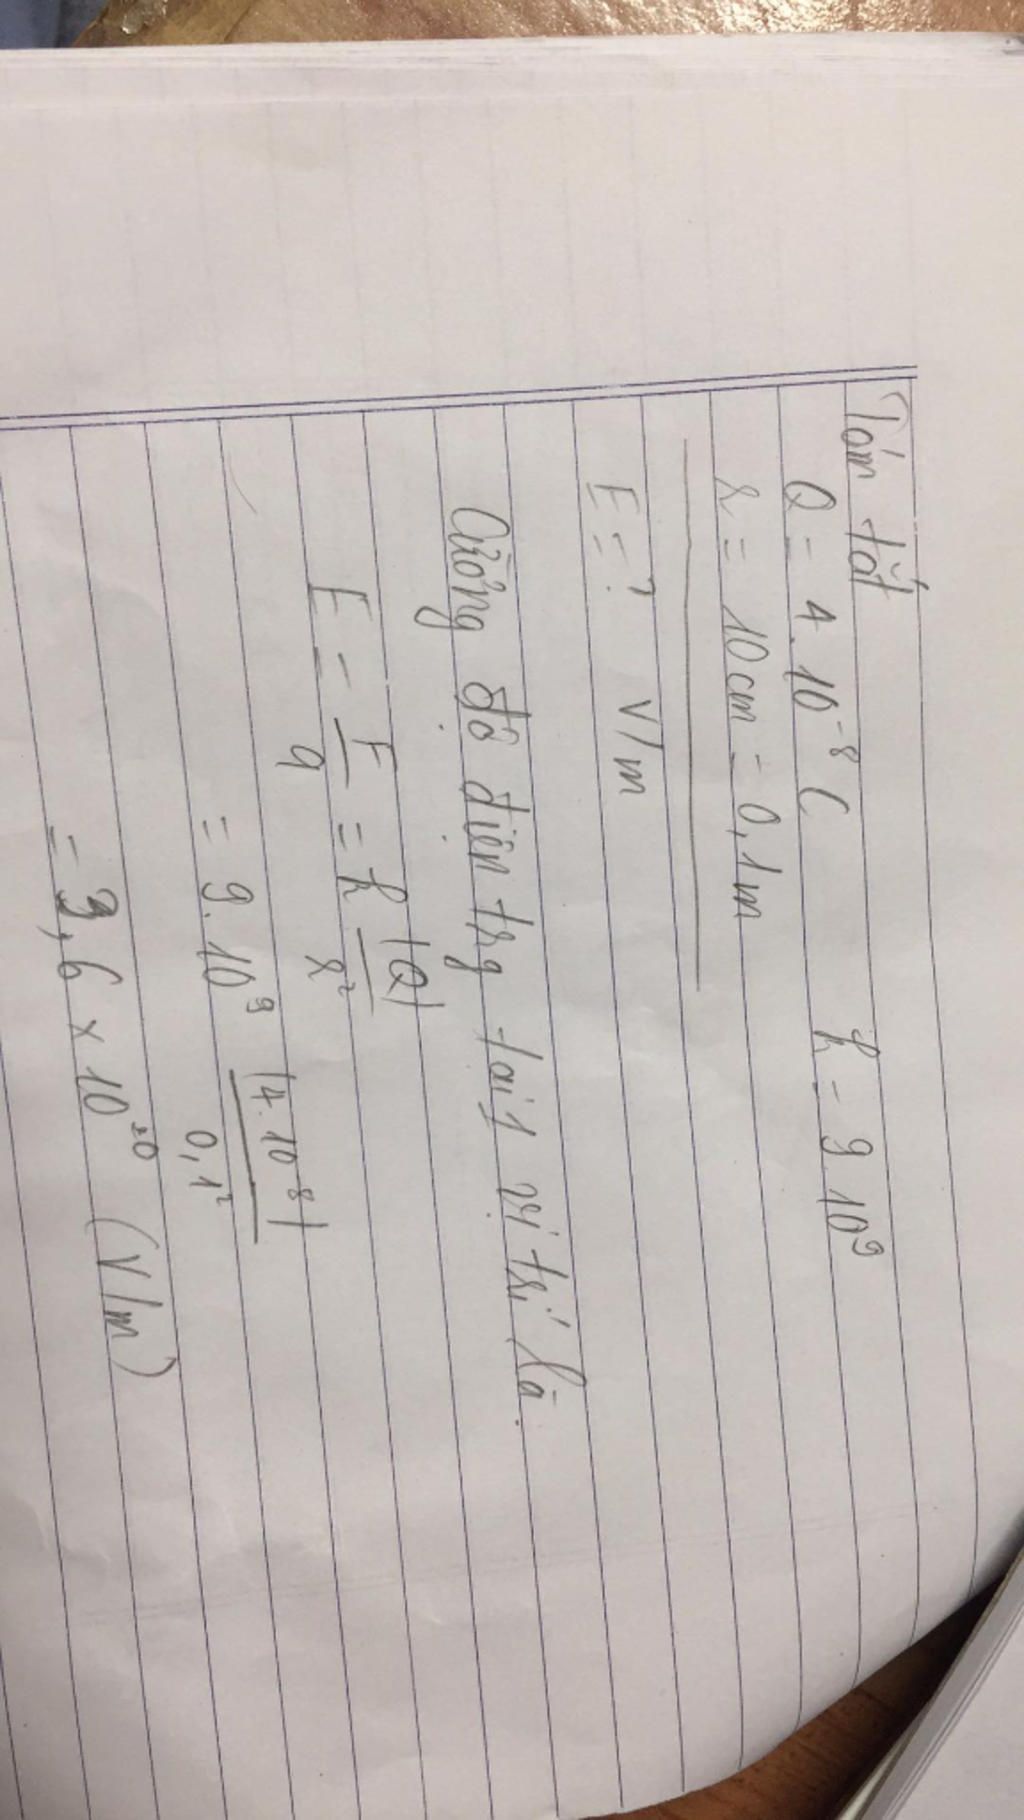 Tóm tắt
Q = 4.10⁻⁸ C k = 9 10⁹
r = 10cm = 0,1m
E = ? V/m
Cường độ điện trg tại 1 vị trí là
E = F/q = k |Q|/r²
= 9.10⁹ |4.10⁻⁸|/0,1²
= 3,6 × 10²⁰ (V/m)